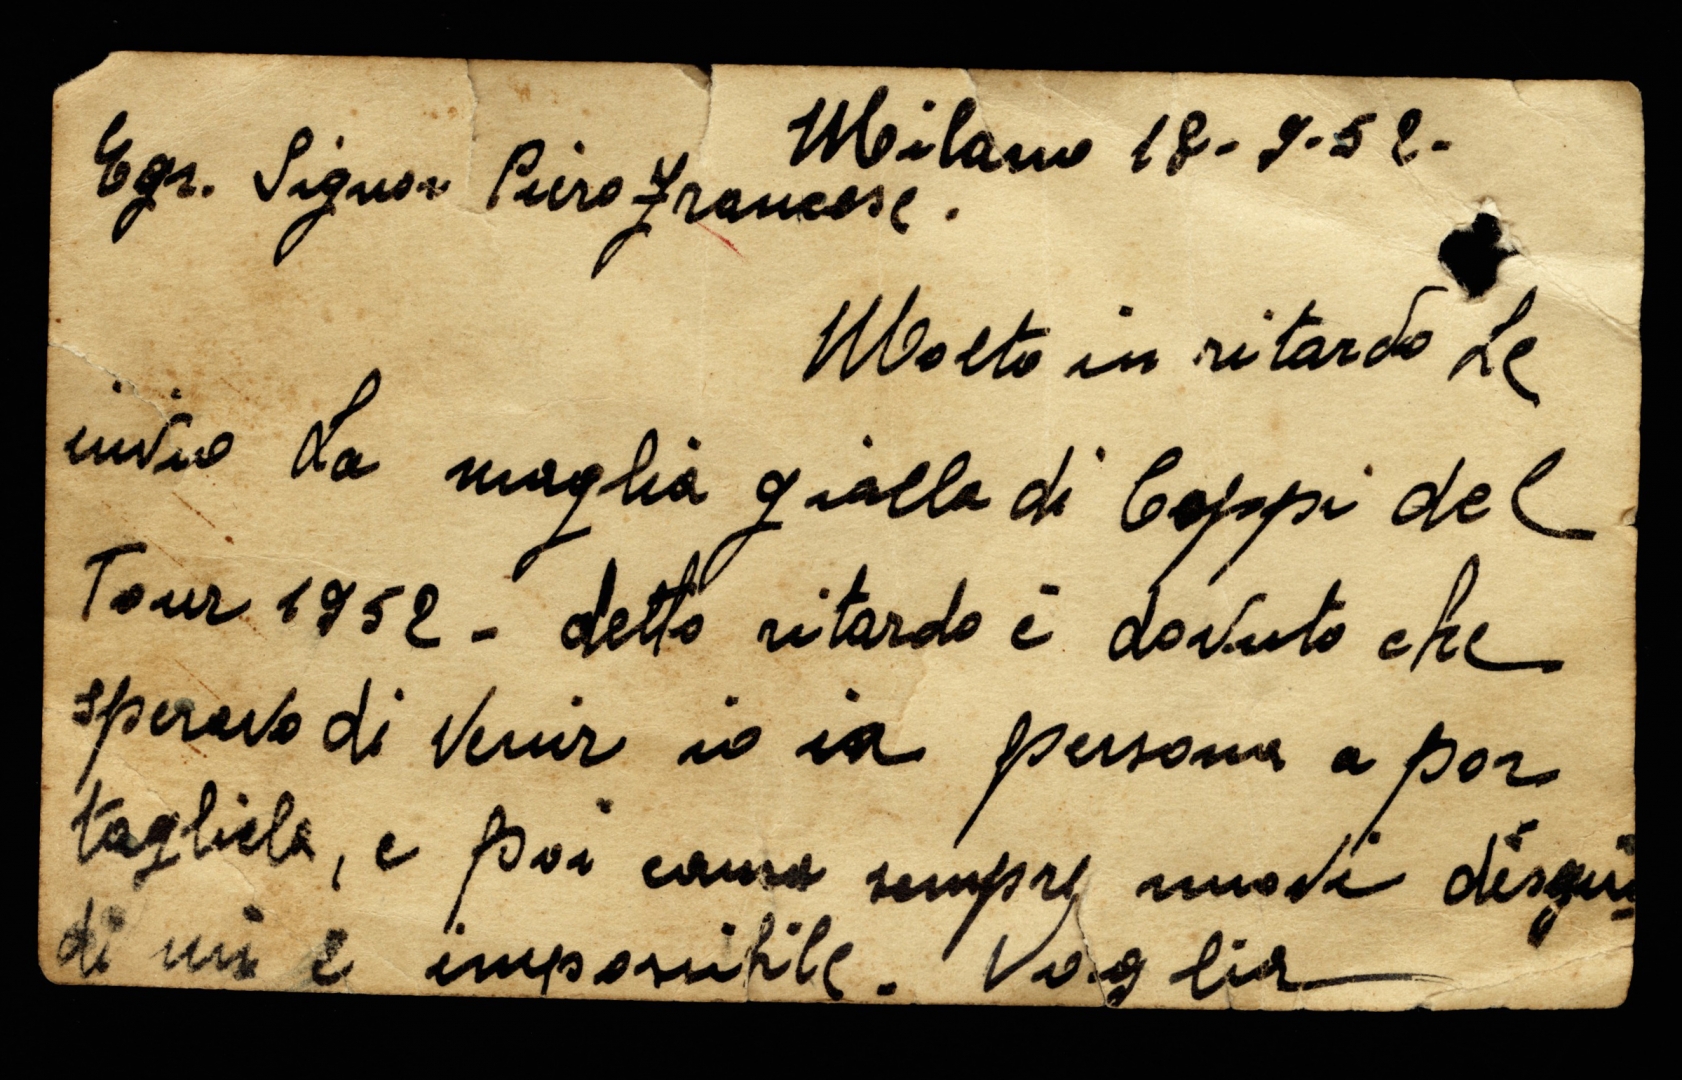 Milano 18-9-52-
Egr. Signor Piero Francese.
Molto in ritardo Le
invio La maglia gialla di Coppi del
Tour 1952 - detto ritardo è dovuto che
speravo di venir io in persona a por
tagliela, e poi come sempre nuovi disgui
di mi è impossibile. Voglia